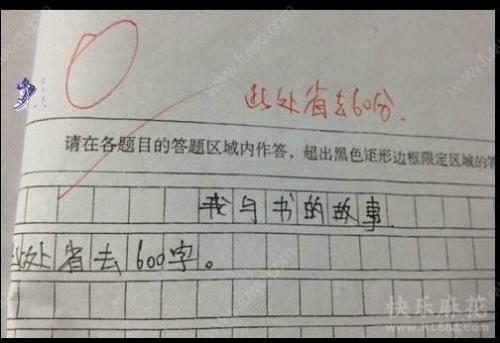 此处省去60分.
请在各题目的答题区域内作答，超出黑色矩形边框限定区域的答
我与书的故事.
此处省去600字。
快乐麻花
www.KL688.com
www.fuwo.com